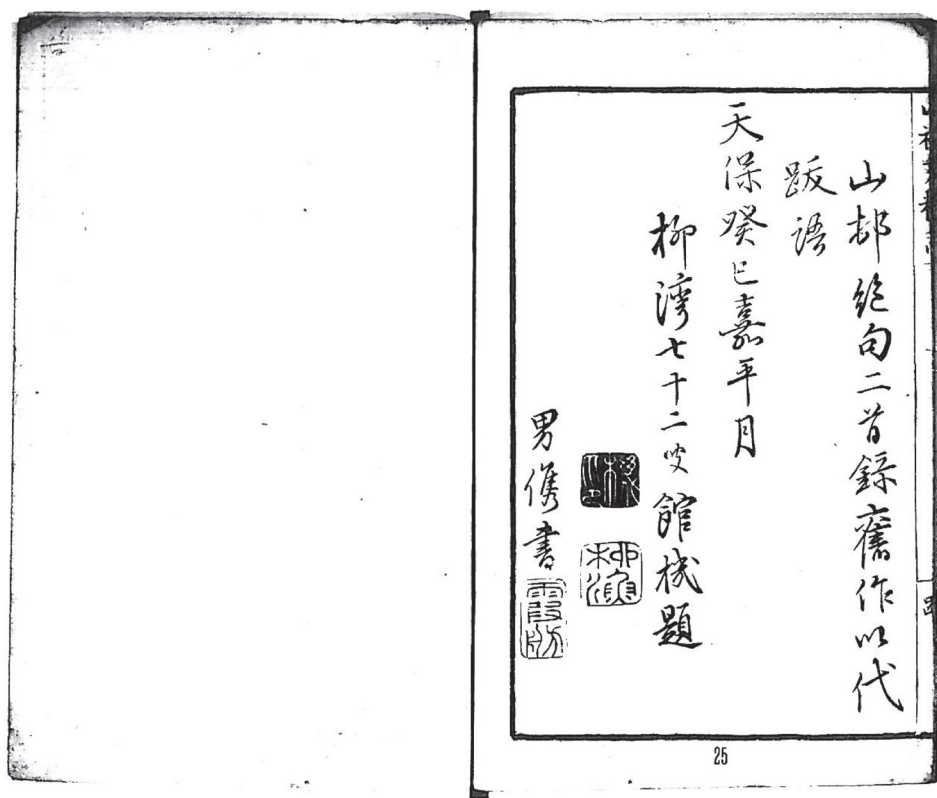 山邨絶句二首錄舊作以代
跋語
天保癸巳嘉平月
柳灣七十二叟館機題
男儁書
霞舫
25